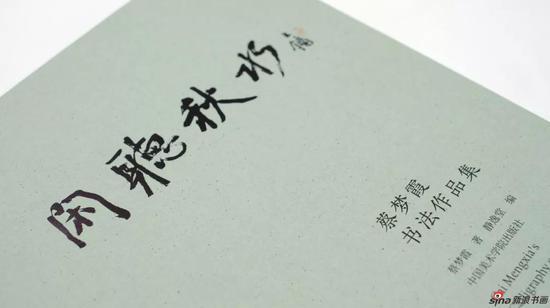 闲聽秋水
蔡梦霞
书法作品集
蔡梦霞 著 静逸堂 编
中国美术学院出版社
Mengxia's
sina 新浪书画